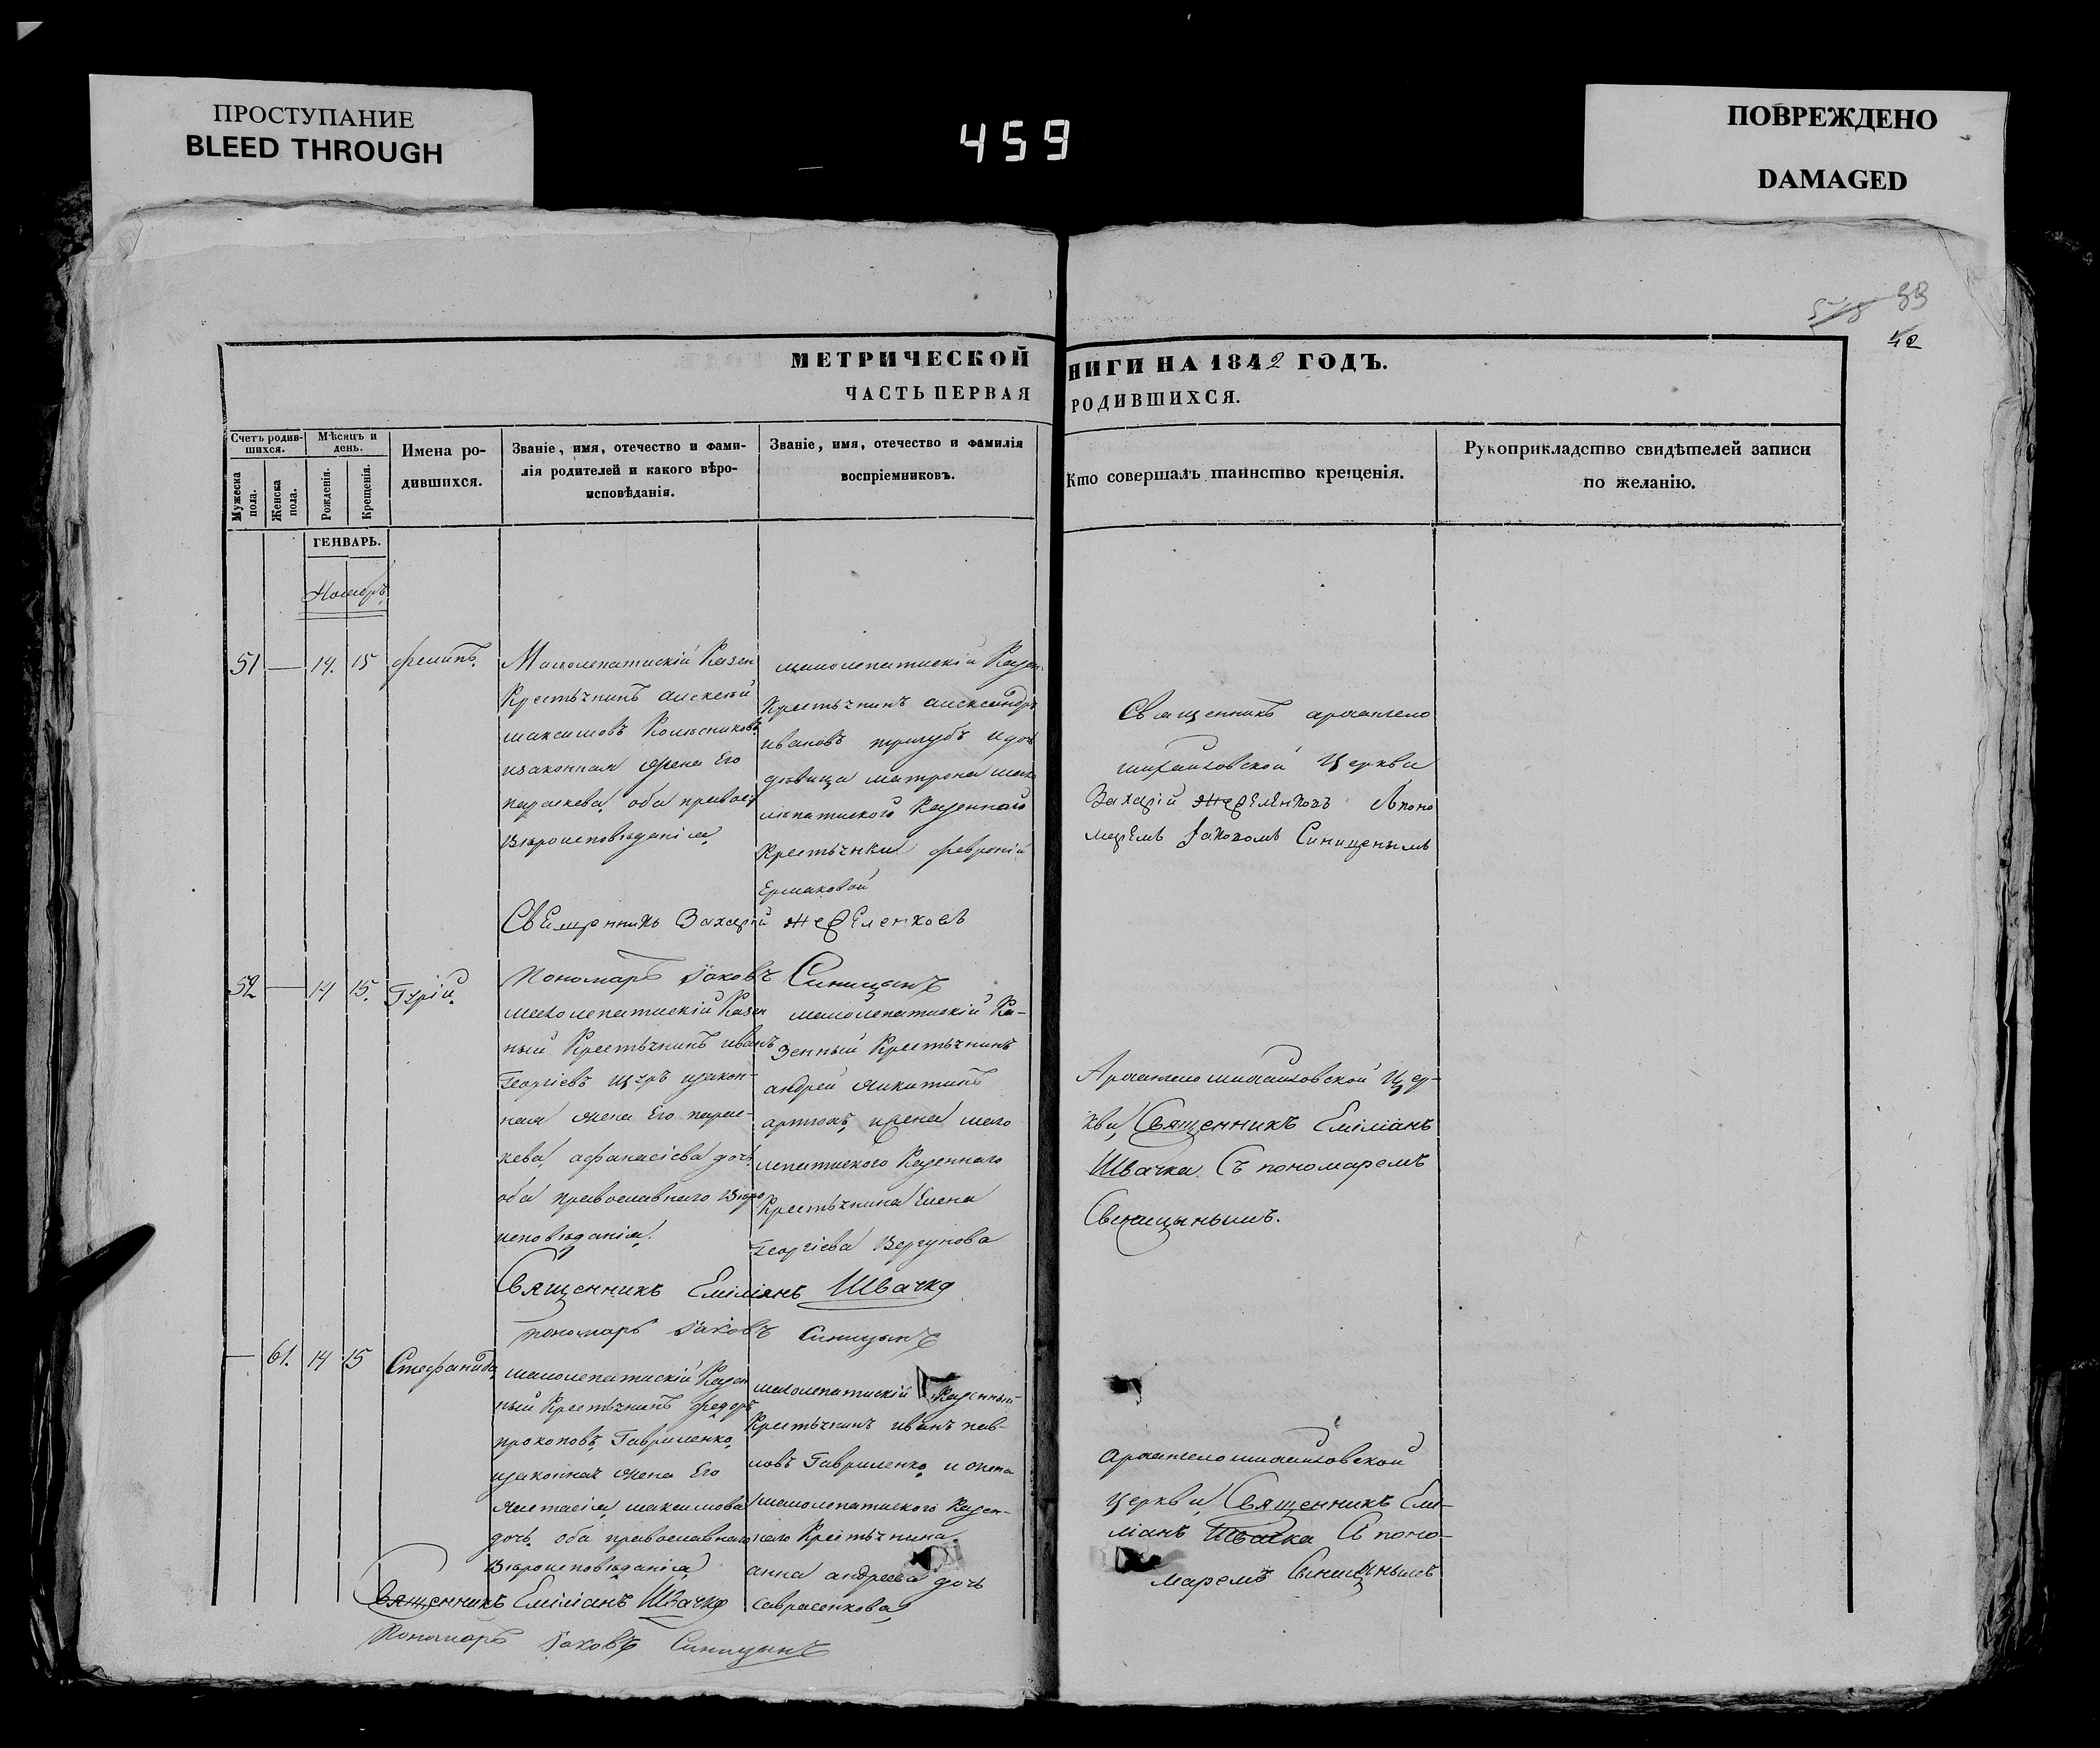 ПРОСТУПАНИЕ
BLEED THROUGH
459
ПОВРЕЖДЕНО
DAMAGED
42
МЕТРИЧЕСКОЙ
НИГИ НА 1842 ГОДЪ.
ЧАСТЬ ПЕРВАЯ
РОДИВШИХСЯ.
Счетъ родив-
шихся.
Мужеска
пола.
Женска
пола.
Мѣсяцъ и
день.
Рожденія.
Крещенія.
Имена ро-
дившихся.
Званіе, имя, отечество и фами-
лія родителей и какого вѣро-
исповѣданія.
Званіе, имя, отечество и фамилія
воспріемниковъ.
Кто совершалъ таинство крещенія.
Рукоприкладство свидѣтелей записи
по желанію.
ГЕНВАРЬ.
Ноябрь
51 — 14. 15 Филипъ.
Казен
Крестьянинъ Алексѣй
Максимовъ Колесниковъ
изаконная жена Его
параскева, оба православ
Вѣроисповѣданія
Казен-
Крестьянинъ александръ
ивановъ идочь
дѣвица матрона мало
Казеннаго
Крестьянки февроніи
Ермаковой
Священникъ
михайловской Церкви
Захарій Жебеленковъ съ поно
маремъ Іаковомъ Синицынымъ
Священникъ Захарій Жебеленковъ
Пономарь Іаковъ Синицынъ
52 — 14 15. Гурій.
Казен
ный Крестьянинъ иванъ
Георгіевъ изакон-
ная жена Его парас-
кева, афанасіева дочь,
оба православнаго Вѣро
исповѣданія.
Ка-
зенный Крестьянинъ
андрей никитинъ
мало
Казеннаго
Крестьянина Елена
Георгіева Вергунова
Архангеломихайловской Цер-
кви, Священникъ Емиліанъ
Швачка. Съ пономаремъ
Синицынымъ.
Священникъ Емиліанъ Швачка
пономарь Іаковъ Синицынъ
— 61. 14 15 Стефанида
Казен
ный Крестьянинъ федоръ
прокоповъ, Гавриленко,
изаконная жена Его
Анастасія, максимова
дочь, оба православнаго
Вѣроисповѣданія
Казенный
Крестьянинъ иванъ пав-
ловъ Гавриленко, и жена
Казен-
наго Крестьянина
анна андреева дочь
саврасенкова
Архангеломихайловской
Церкви, Священникъ Еми-
ліанъ Швачка Съ поно-
маремъ Синицынымъ
Священникъ Емиліанъ Швачка
Пономарь Іаковъ Синицынъ